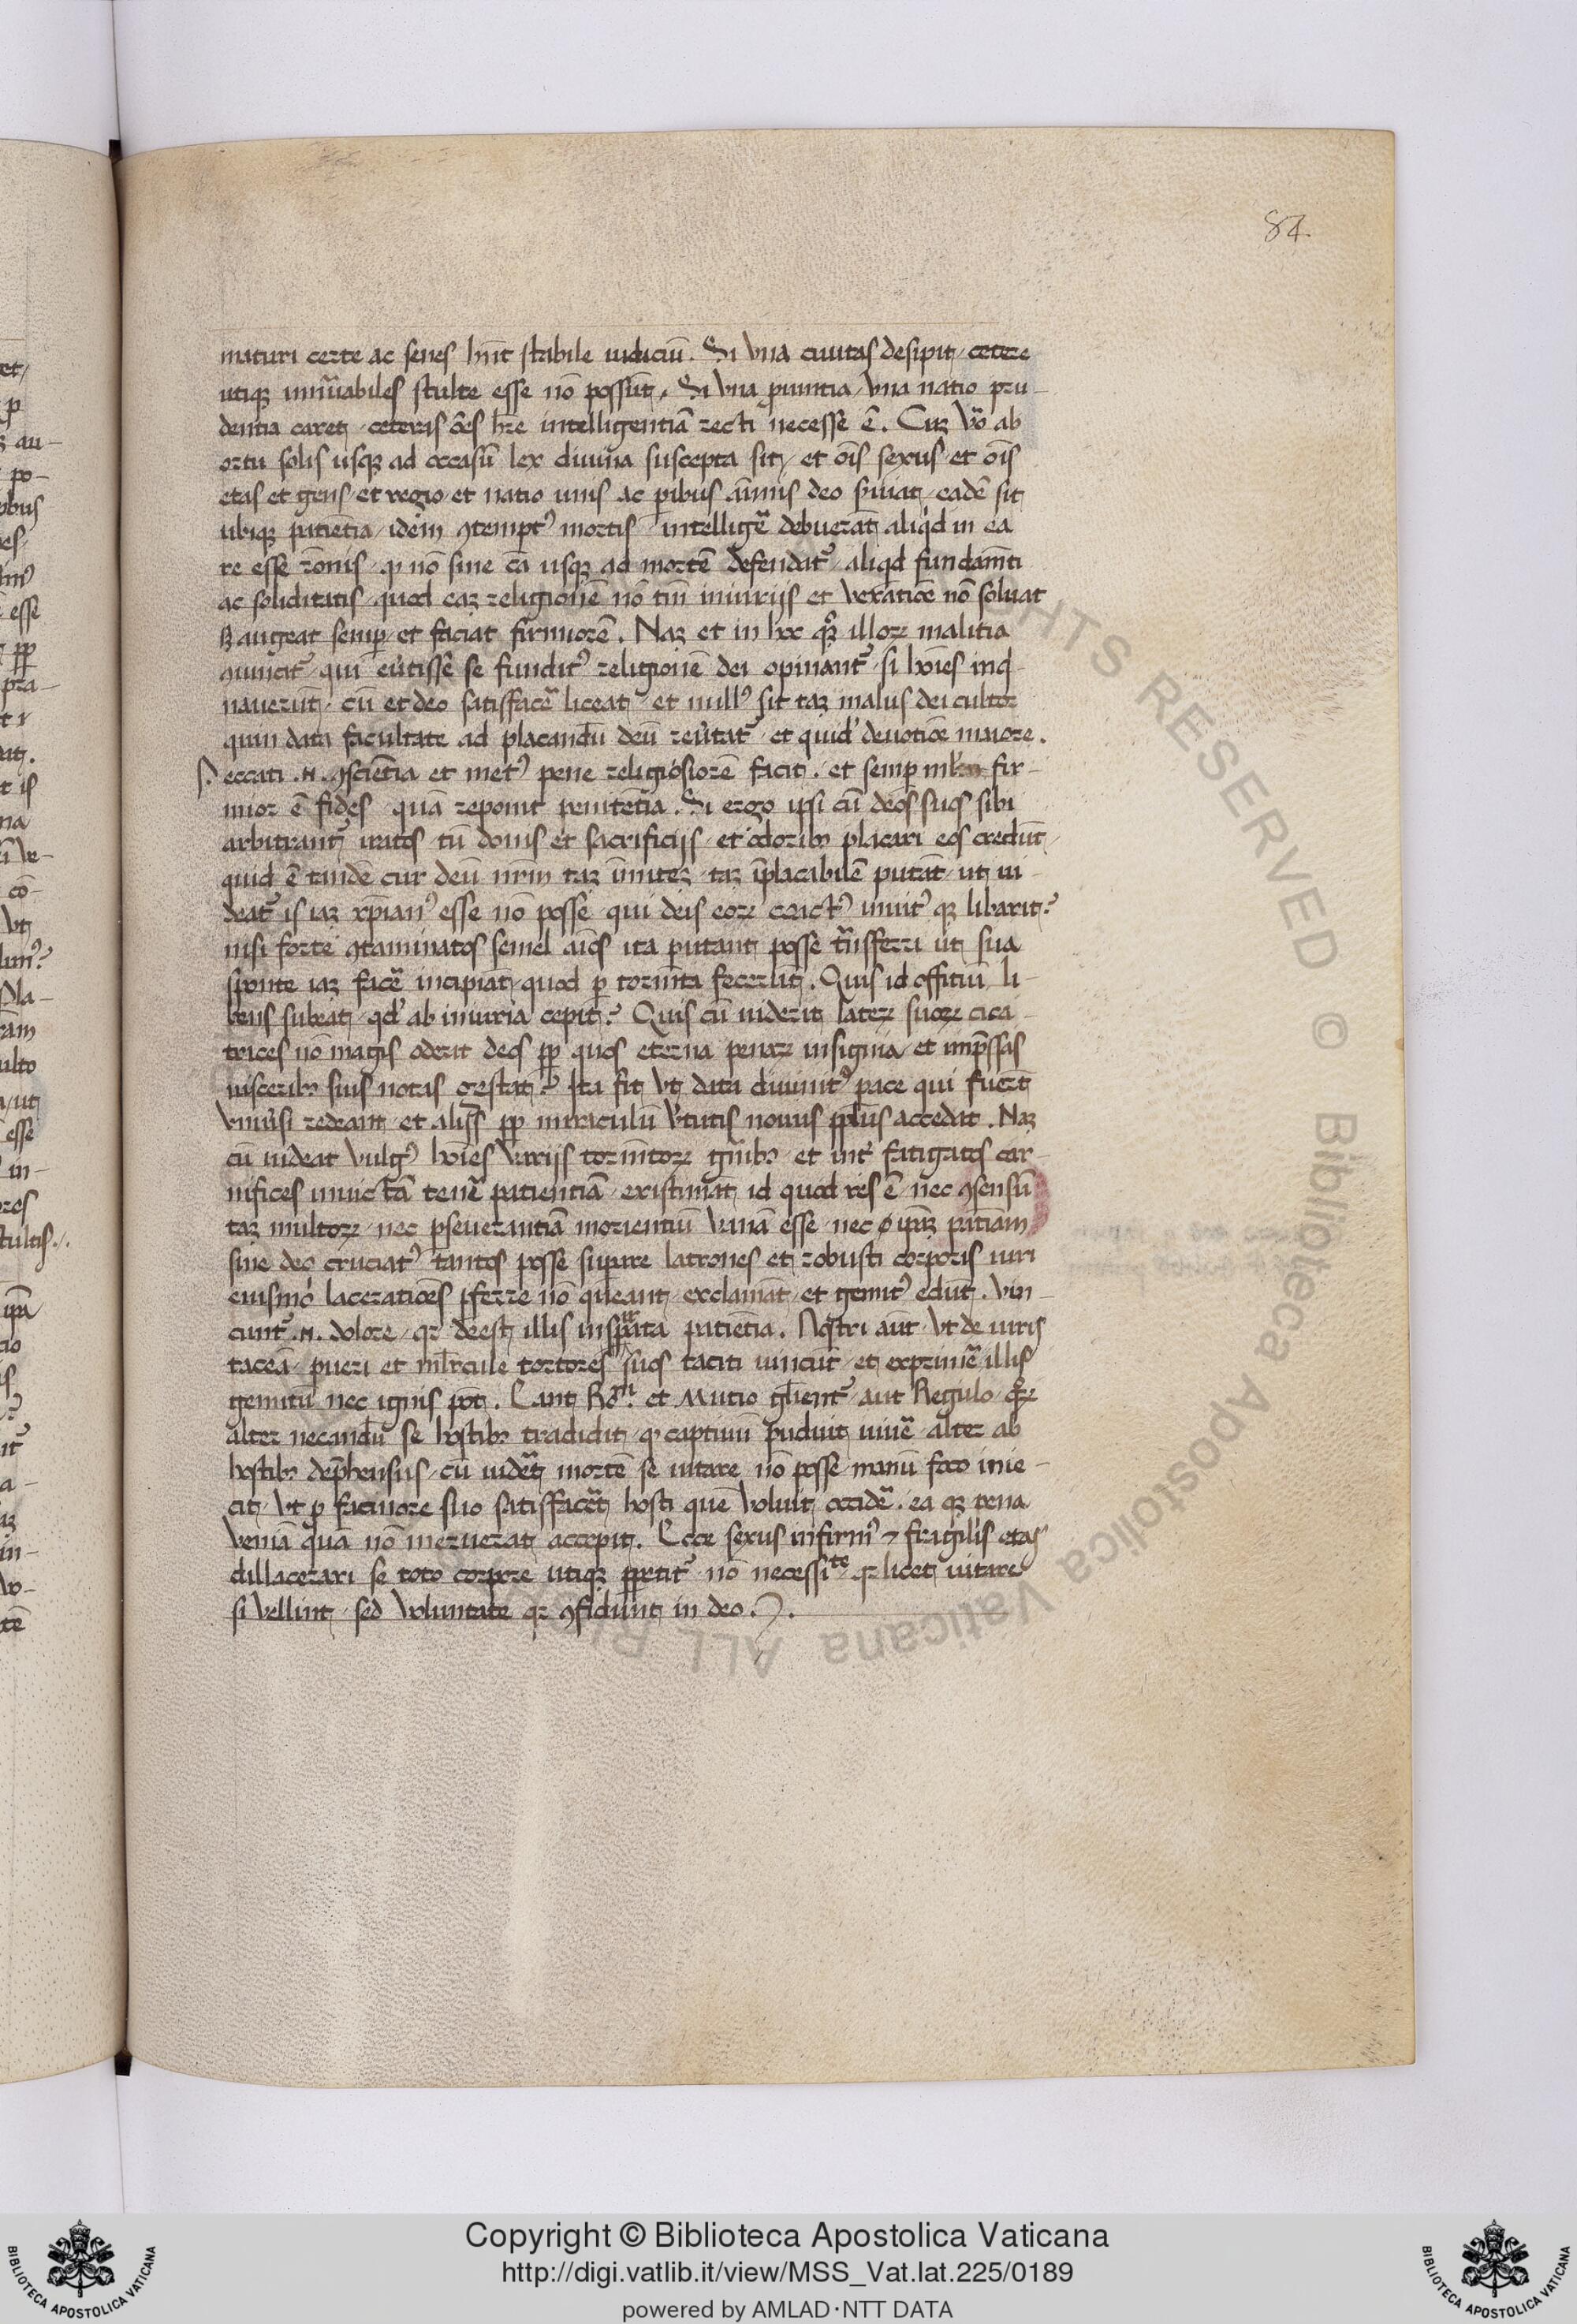 84
maturi certe ac senes hn̄t stabile iudiciū. Si vna ciuitas desipit, cetere
utiqꝫ innūabiles stulte esse nō possūt, Si vna ꝓuintia, vna natio pru-
dentia caret, ceteris ōēs hr̄e intelligentiā recti necesse ē. Cuꝫ v̄o ab
ortu solis usqꝫ ad occasū lex diuina suscepta sit, et oīs sexus et oīs
etas et gens, et regio et natio unis ac ꝑibus aīmis deo s̄uiat, eadē sit
ubiqꝫ patiētia, idem ꝯtemptꝰ mortis, intelligē debuerāt aliqd in ea
re esse rōnis, qꝛ nō sine cā usqꝫ ad mortē defendat᷑, aliqd fundam̄ti
ac soliditatis quod eaꝫ religionē nō tm̄ iniurijs et vexatiōe nō soluat
sꝫ augeat semꝑ, et faciat firmiorē. Naꝫ et in hoc illoꝝ malitia
ꝯuincit᷑, qui eu̓tisse se funditꝰ religionē dei opinant᷑, si hoīes inq-
nauerūt, cū et deo satisfacē liceat, et nullꝰ sit taꝫ malus dei cultor
quin data facultate ad placandū deū reu̓tat᷑, et quidē deuotiōe maiore.
Peccati .n. ꝯscientia et metꝰ pene religiosiorē facit, et semꝑ fir-
mior ē fides quā reponit penitētia. Si ergo ipsi cū deos suos sibi
arbitrant᷑ iratos, tū donis et sacrificijs, et odoribꝫ placari eos credūt,
quid ē tandē cur deū nrm̄ taꝫ īmiteꝫ, taꝫ īplacabilē putāt, ut ui-
deat᷑ is iaꝫ xp̄ianꝰ esse nō posse, qui deis eoꝝ coactꝰ inuitꝰ qꝫ libarit?
nisi forte ꝯtaminatos semel aīos ita putant posse tn̄sferri ut sua
sponte iaꝫ facē incipiāt, quod ꝑ torm̄ta fecerūt. Quis id offitiū li-
bens subeat, qd̓ ab iniuria cepit? Quis cū uiderit lateꝝ suoꝝ cica-
trices nō magis oderit deos ꝓp quos eterna penaꝝ insignia, et imp̄ssas
uisceribꝫ suis notas gestat? Ita fit vt data diuinitꝰ pace qui fuer̄t
vniu̓si redeant, et ꝓp miraculū v̓tutis nouus accedat. Naꝫ
cū uideat vulgꝰ hoīes varijs torm̄toꝝ gn̄ibꝫ, et int̓ fatigatos car-
nifices inuictā tenē patientiā, existimāt id quod res ē, nec ꝯsensū
taꝫ multoꝝ, nec ꝑseuerantiā morientiū vanā esse, nec ipāꝫ patīam
sine deo cruciatꝰ tantos posse suꝑare. latrones et robusti corporis uiri
eiusmōi laceratiōes ꝑferre nō queant, exclamāt, et gemitꝰ edūt. Vin-
cunt᷑ .n. dolore, qꝛ deest illis inspirata patiētia. Nostri aūt, vt de uiris
taceā, pueri et ml̄iercule tortores suos taciti uincūt, et exprimē illis
gemitū nec ignis pōt. Eant Rōni et Mutio gl̄ient᷑, aut Regulo, quoꝝ
alter necandū se hostibꝫ tradidit, qꝛ captiuū puduit uiuē, alter ab
hostibꝫ dep̄hensus, cū uidēt mortē se uitare nō posse, manū foco inie-
cit, vt ꝑ facinore suo satisfacēt hosti quē voluit occidē, ea qꝫ pena
veniā quā nō meruerat accepit. Ecce sexus infirmꝰ ⁊ fragilis etas
dillacerari se toto corpore utiqꝫ ꝑpetit᷑, nō necessite, qꝛ licet uitare
si vellint, sed voluntate qꝛ ꝯfidunt in deo.
ALL RIGHTS RESERVED © Biblioteca Apostolica Vaticana
Copyright © Biblioteca Apostolica Vaticana
http://digi.vatlib.it/view/MSS_Vat.lat.225/0189
powered by AMLAD·NTT DATA
BIBLIOTECA APOSTOLICA VATICANA
BIBLIOTECA APOSTOLICA VATICANA